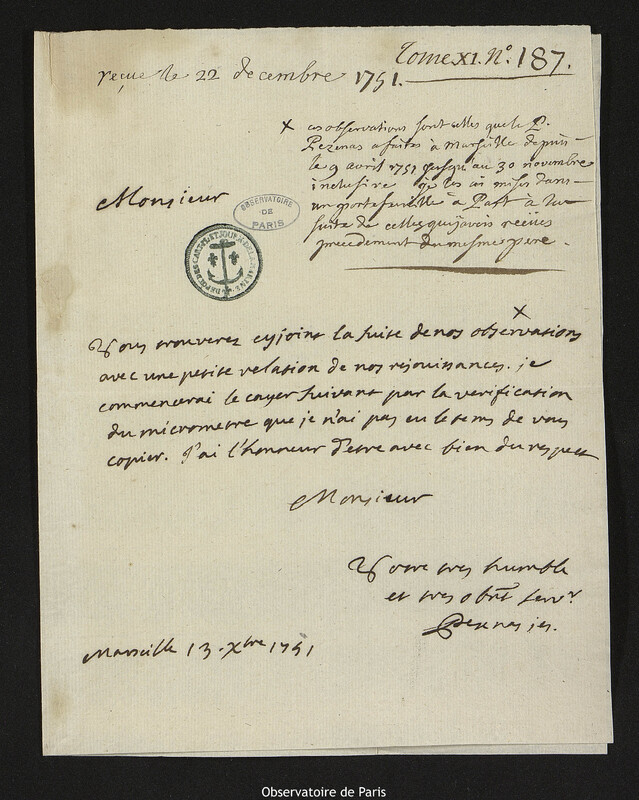 Tome XI. N.° 187.
reçue le 22 decembre 1751.
× ces observations sont celles que le P.
Pezenas a faites à Marseille depuis
le 9 avril 1751 jusqu'au 30 novembre
inclusive je les ai mises dans
un portefeuille à Part à la
suite de celles que j'avois reçues
precedement du mesme pere.
Monsieur
OBSERVATOIRE
DE
PARIS
×
Vous trouverez cyjoint la suite de nos observations
avec une petite relation de nos rejouissances. je
commencerai le cayer suivant par la verification
du micrometre que je n'ai pas eu le tems de vous
copier. J'ai l'honneur d'etre avec bien du respect
Monsieur
Votre tres humble
et tres obnt serv.r
Pezenas jes.
Marseille 13. Xbre 1751
Observatoire de Paris